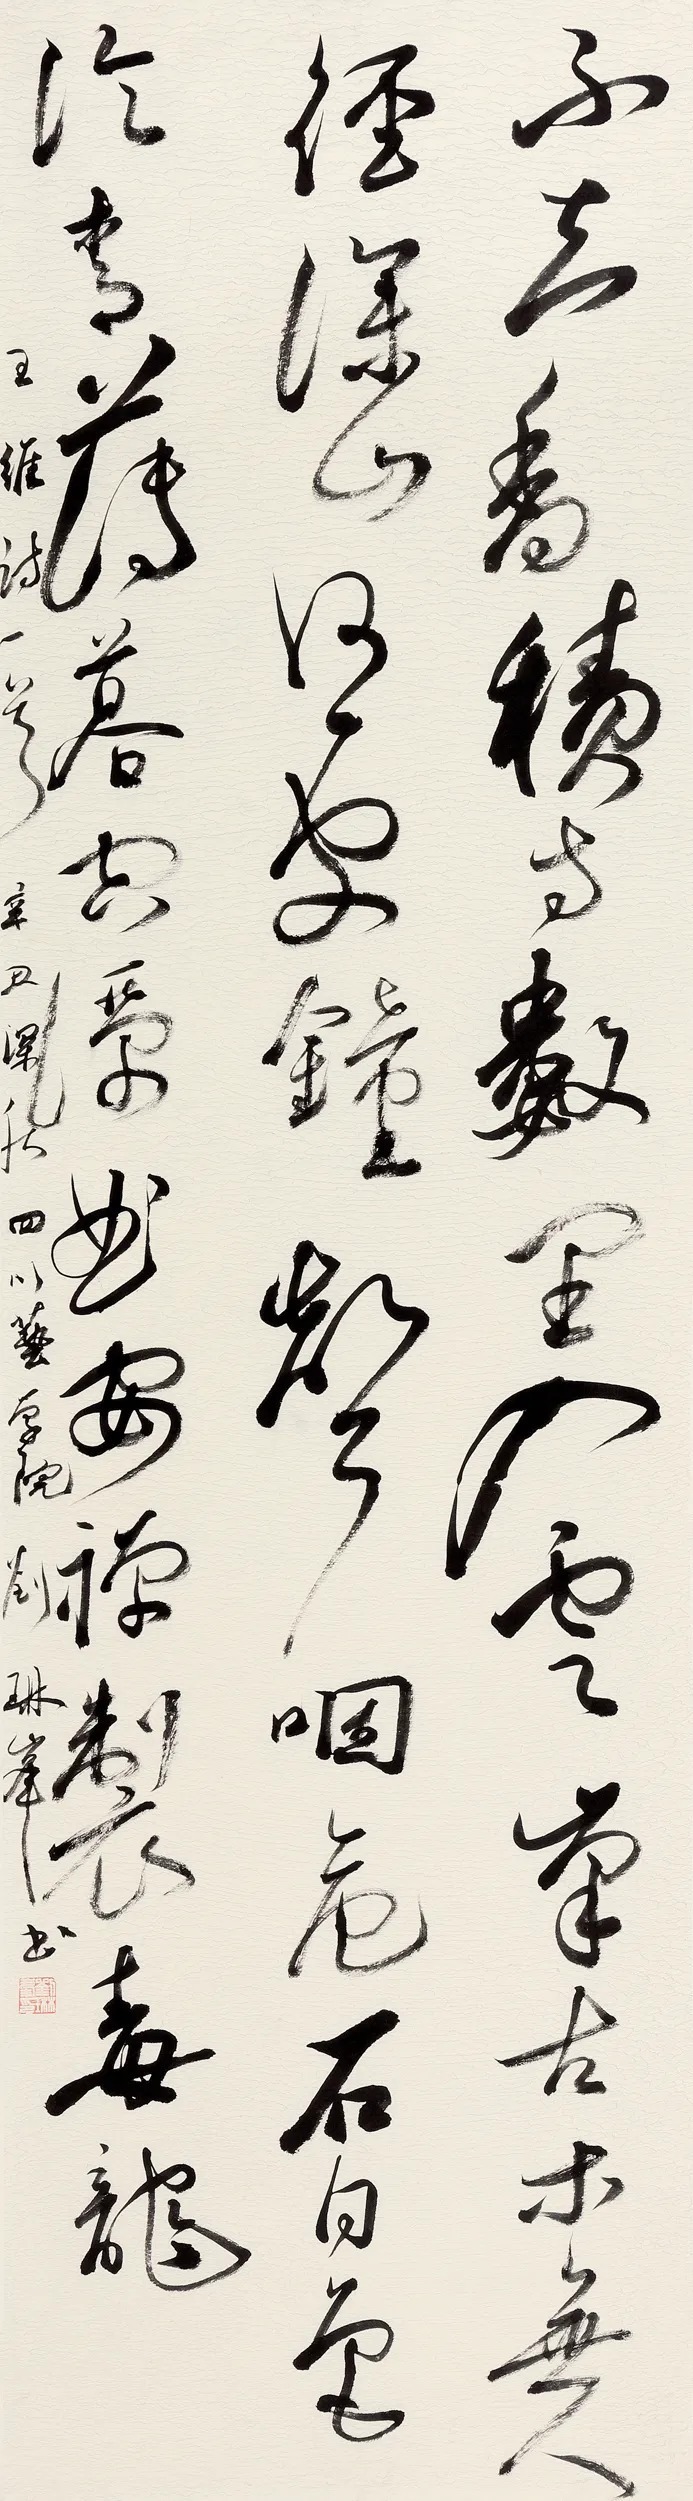 不知香積寺數里入雲峯古木無人
徑深山何處鐘聲咽危石日色
冷青薄暮空潭曲安禪製毒龍
王維詩一首 辛丑深秋 四川藝學院 劉琳峯書